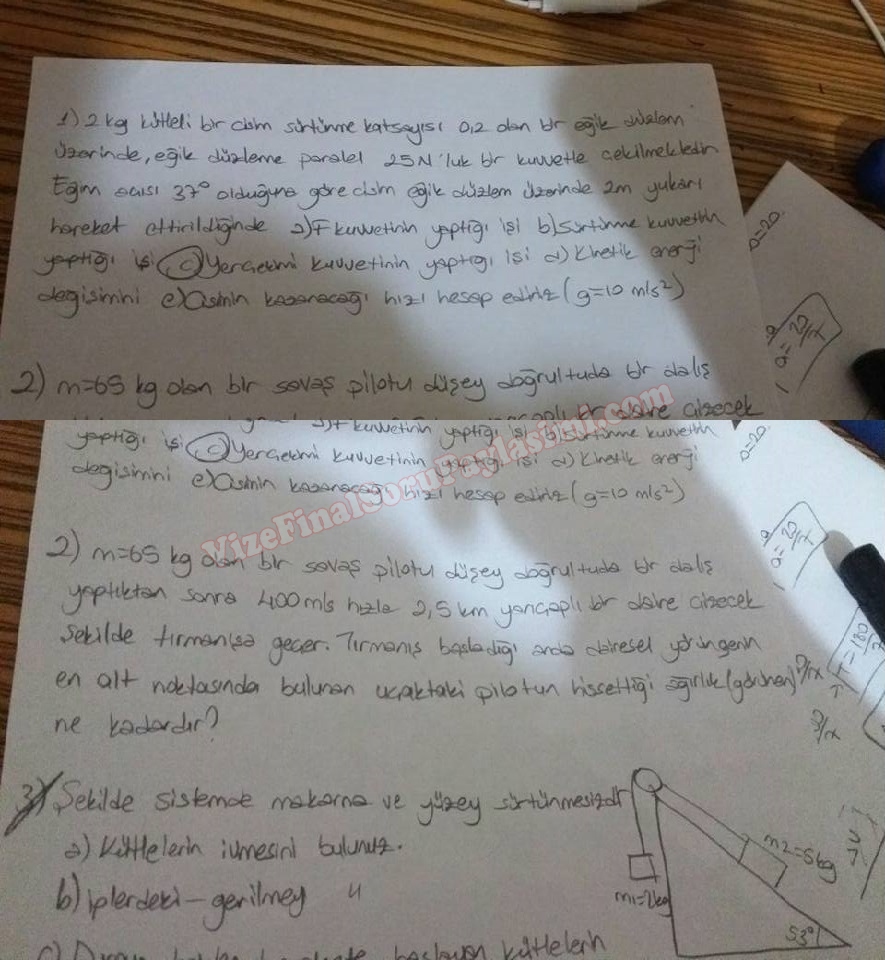 1) 2 kg kütleli bir cisim sürtünme katsayısı 0,2 olan bir eğik düzlem
üzerinde, eğik düzleme paralel 25N'luk bir kuvvetle çekilmektedir
Eğim açısı 37° olduğuna göre cisim eğik düzlem üzerinde 2m yukarı
hareket ettirildiğinde a) F kuvvetinin yaptığı işi b) Sürtünme kuvvetinin
yaptığı işi c) Yerçekimi kuvvetinin yaptığı işi d) Kinetik enerji
değişimini e) Cismin kazanacağı hızı hesap ediniz (g=10 m/s²)
2) m=65 kg olan bir savaş pilotu düşey doğrultuda bir dalış
bir daire çizecek
yaptığı işi c) Yerçekimi kuvvetinin yaptığı işi d) Kinetik enerji
değişimini e) Cismin kazanacağı hızı hesap ediniz (g=10 m/s²)
VizeFinalSoruPaylasimi.com
2) m=65 kg olan bir savaş pilotu düşey doğrultuda bir dalış
yaptıktan sonra 400m/s hızla 2,5 km yarıçaplı bir daire çizecek
şekilde tırmanışa geçer. Tırmanış başladığı anda dairesel yörüngenin
en alt noktasında bulunan uçaktaki pilotun hissettiği ağırlık (görünen)
ne kadardır?
3) Şekilde sistemde makara ve yüzey sürtünmesizdir
a) Kütlelerin ivmesini bulunuz.
b) iplerdeki gerilmeyi "
m1=2kg
m2=5kg
53°
başlayan kütlelerin